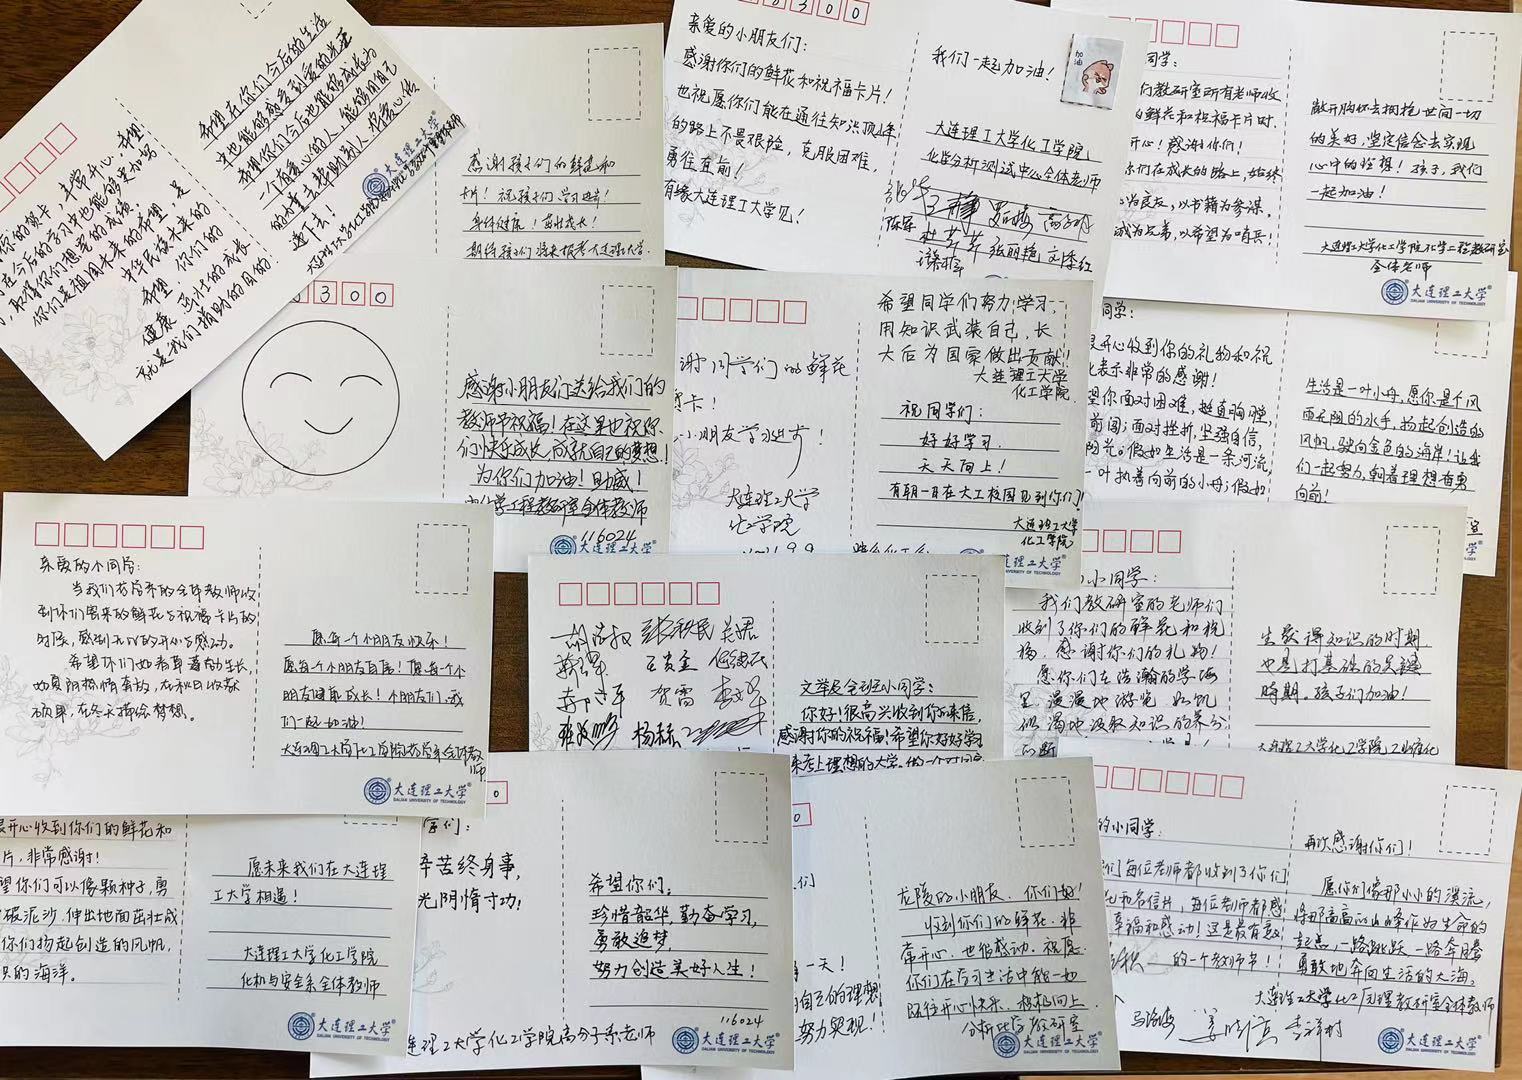 希望在你们今后的生活
中也能够感受到爱的
希望你们今后也能够成长为
一个有爱心的人,能够用自己
的力量去帮助别人,将爱心传
递下去!
你的贺卡,非常开心,希望
在今后的学习中也能够更加努
,取得你们想要的成绩。
你们是祖国未来的希望,是
中华民族未来的
希望,你们的
健康、茁壮的成长
就是我们捐助的目的!
感谢孩子们的鲜花和
片!祝孩子们学习进步!
身体健康!茁壮成长!
期待孩子们将来报考大连理工大学.
大连理工大学
300
亲爱的小朋友们:
感谢你们的鲜花和祝福卡片!
也祝愿你们能在通往知识顶峰
的路上不畏艰险,克服困难,
勇往直前!
有缘大连理工大学见!
我们一起加油!
加油
大连理工大学化工学院
化学分析测试中心全体老师
同学:
们教研室所有老师收
鲜花和祝福卡片时.
开心!感谢你们!
你们在成长的路上,始终
为良友,以书籍为参谋,
成为兄弟,以希望为哨兵!
敞开胸怀去拥抱世间一切
的美好,坚定信念去实现
心中的理想!孩子,我们
一起加油!
大连理工大学化工学院化学工程教研室
全体老师
大连理工大学
DALIAN UNIVERSITY OF TECHNOLOGY
300
感谢小朋友们送给我们的
教师节祝福!在这里也祝你
们快乐成长,成就自己的梦想!
为你们加油!助威!
化学工程教研室全体教师
116024
大连理工大学
谢同学们的鲜花
卡!
小朋友学习进步!
大连理工大学
化工学院
希望同学们努力学习,
用知识武装自己,长
大后为国家做出贡献!
大连理工大学
化工学院
祝同学们:
好好学习
天天向上!
有朝一日在大工校园见到你们!
大连理工大学
化工学院
大连理工大学
DALIAN UNIVERSITY OF TECHNOLOGY
同学:
很开心收到你的礼物和祝
表示非常的感谢!
望你面对困难,挺直胸膛,
前闯;面对挫折,坚强自信,
阳光。假如生活是一条河流,
一叶执着向前的小舟;假如
生活是一叶小舟,愿你是个风
雨无阻的水手,扬起创造的
风帆,驶向金色的海岸!让我
们一起努力,朝着理想奋勇
向前!
亲爱的小同学:
当我们
全体教师收
到你们寄来的鲜花与祝福卡片的
时候,感到无比的开心与感动。
希望你们如春草蓬勃生长,
如夏阴热情奔放,在秋日收获
硕果,在冬天描绘梦想。
愿每一个小朋友快乐!
愿每一个小朋友自信!愿每一个小
朋友健康成长!小朋友们,我
们一起加油!
大连理工大学
DALIAN UNIVERSITY OF TECHNOLOGY
贺雷
杨赫
文举及全班小同学:
你好!很高兴收到你的来信,
感谢你们的祝福!希望你好好学习
来考上理想的大学。做一个对国家
小同学:
我们教研室的老师们
收到了你们的鲜花和祝
福,感谢你们的礼物!
愿你们在浩瀚的学海
里,漫漫地游览,如饥
似渴地汲取知识的养分
生获得知识的时期,
也是打基础的关键
时期。孩子们加油!
大连理工大学化工学院工业催化
很开心收到你们的鲜花和
片,非常感谢!
望你们可以像颗种子,勇
破泥沙,伸出地面茁壮成
你们扬起创造的风帆,
识的海洋。
愿未来我们在大连理
工大学相遇!
大连理工大学化工学院
化机与安全系全体教师
大连理工大学
DALIAN UNIVERSITY OF TECHNOLOGY
0
们:
辛苦终身事,
光阴惰寸功!
希望你们,
珍惜韶华,勤奋学习,
勇敢追梦,
努力创造美好人生!
116024
连理工大学化工学院高分子系老师
大连理工大学
DALIAN UNIVERSITY OF TECHNOLOGY
0
们
一天!
自己的理想
努力实现!
龙陵的小朋友,你们好!
收到你们的鲜花,非
常开心,也很感动,祝愿
你们在学习生活中能一如
既往开心快乐,积极向上.
分析化学教研室
大连理工大学
DALIAN UNIVERSITY OF TECHNOLOGY
的小同学:
们每位老师都收到了你们
和名信片,每位老师都感
幸福和感动!这是最有意
的一个教师节!
再次感谢你们!
愿你们像那小小的溪流,
将那高高的山峰作为生命的
起点,一路跳跃,一路奔腾
勇敢地奔向生活的大海。
大连理工大学
DALIAN UNIVERSITY OF TECHNOLOGY